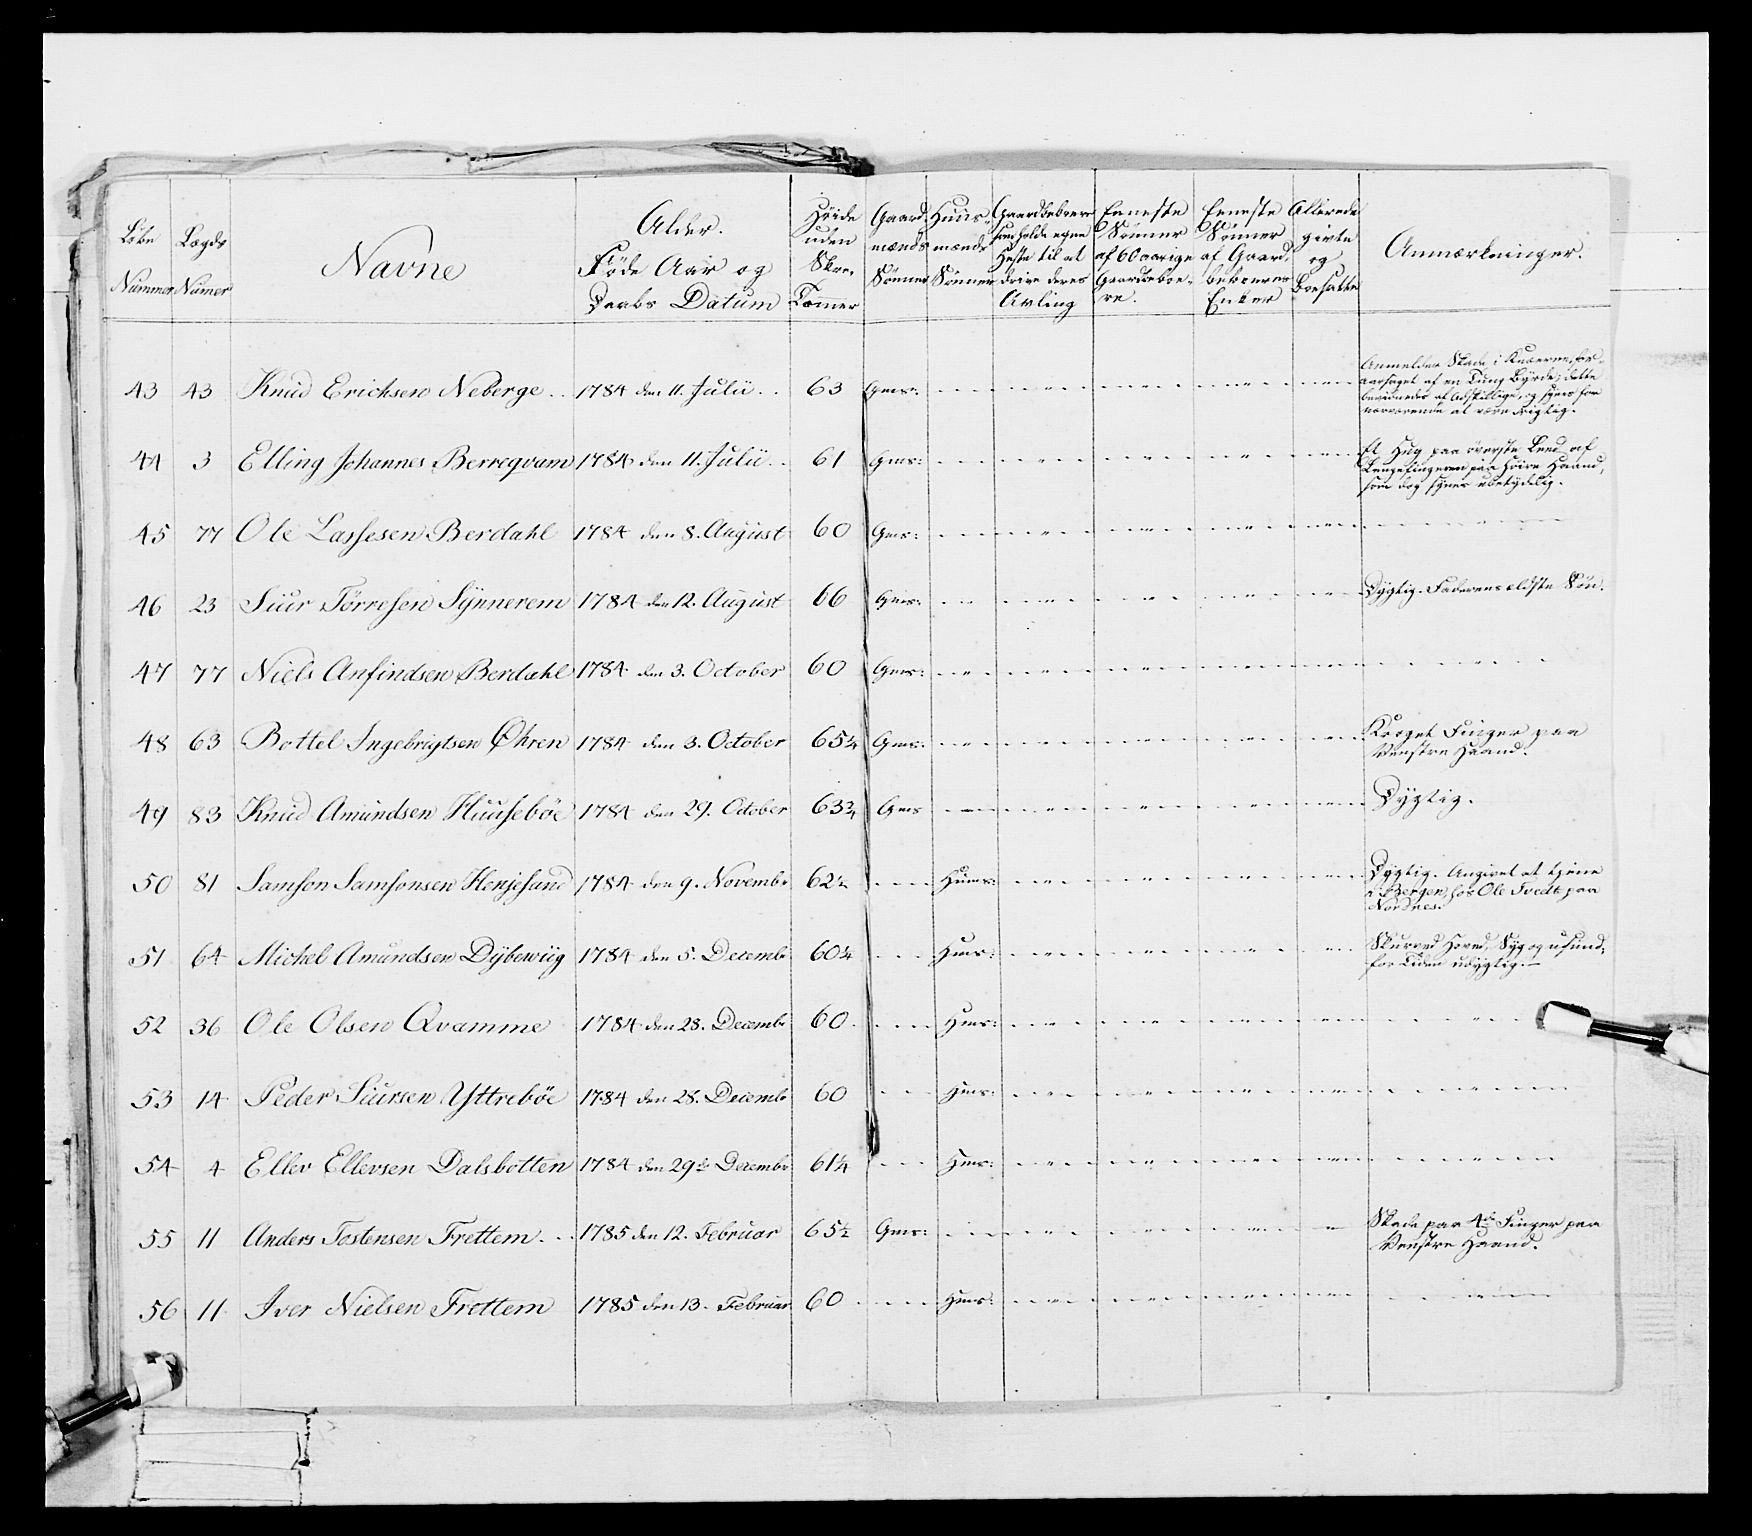 Löbe Nummer
Lægds Numer
Navne
Alder.
Föde Aar og
Daabs Datum
Höide
uden
Skoe.
Tommer
Gaard-
mænds
Sönner
Huus-
mænds
Sönner
Gaardbeboere
som holde egne
Heste til at
drive deres
Avling
Eeneste
Sönner
af 60 aarige
Gaardbeboe-
re.
Eeneste
Sönner
af Gaard-
beboernes
Enker
Allerede
givte
og
boesatte
Anmærkninger.
43 43 Knud Erichsen Neberge .. 1784 den 11. Julii .. 63 Gms:
Anmelder Skade i Knæerne, for-
aarsaget af en Tung Byrde; dette
bevidnedes af Adskillige, og synes for
nærværende at være dygtig.
44 3 Elling Johannes Berreqvam 1784 den 11. Julii .. 61 Gms:
Et Hug paa överste Leed af
Langefingeren paa Höire Haand,
som dog synes ubetydelig.
45 77 Ole Lassesen Berdahl 1784 den 8. August 60 Gms:
46 23 Siur Törresen Synnerem 1784 den 12. August 66 Gms: Dygtig. Faderens eldste Sön.
47 77 Niels Anfindsen Berdahl 1784 den 3. October 60 Gms:
48 63 Bottel Ingebrigtsen Øhren 1784 den 3. October 65¼ Gms:
Kroget Finger paa
Venstre Haand.
49 83 Knud Amundsen Huuseböe 1784 den 29. October 63¾ Gms Dygtig.
50 81 Samson Samsonsen Henjesand 1784 den 9. Novembr 62½ Hums:
Dygtig. Angivet at tjene
i Bergen, hos Ole Tvedt paa
Nordnes.
51 64 Michel Amundsen Dybewiig 1784 den 5. Decembr 60¼ Hms:
Skurved Hoved, Syg og usund,
for Tiden udygtig.
52 36 Ole Olsen Qvamme 1784 den 28. Decembr 60. Hms:
53 14 Peder Siursen Yttreböe 1784 den 28. Decembr 60 Hms:
54 4 Ellev Ellevsen Dalsbotten 1784 den 29de Decembr 61¼ Hms:
55 11 Anders Tostensen Frettem... 1785 den 12. Februar 65½ Gms:
Skade paa 4de Finger paa
Venstre Haand.
56 11 Iver Nielsen Frettem 1785 den 13. Februar 60 Hms: